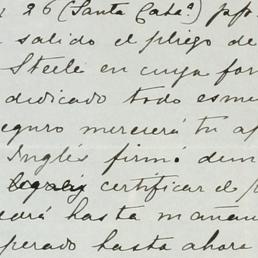 26 (Santa Cataª)
salido el pliego de
Steele en cuya for
dedicado todo esme
eguro merecerá tu ap
Inglés firmó
certificar el
hasta mañan
perado hasta ahora